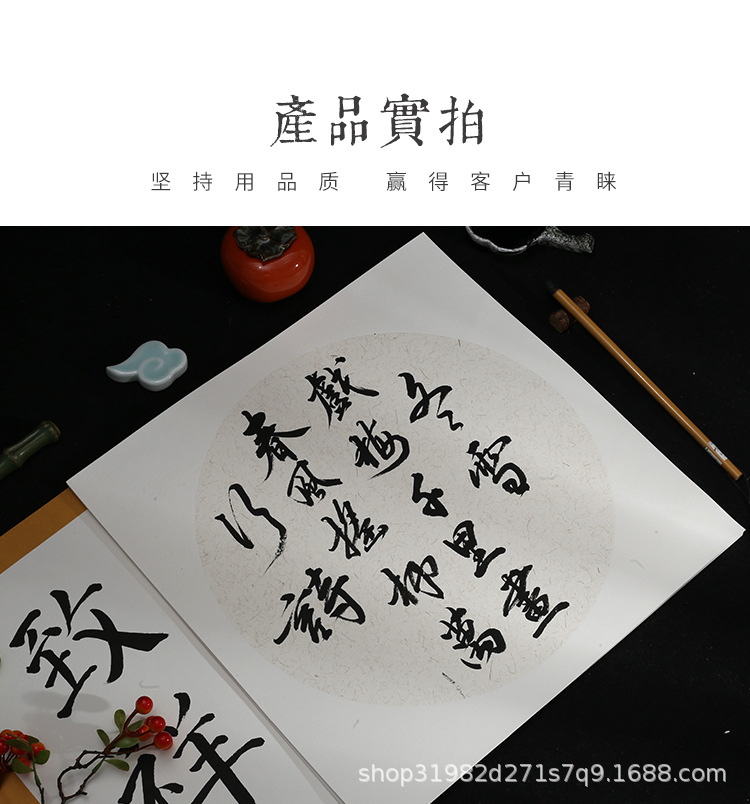 產品實拍
坚持用品质 赢得客户青睐
冬雪
戲梅千里畫
春風搖柳萬
行詩
致祥
shop31982d271s7q9.1688.com